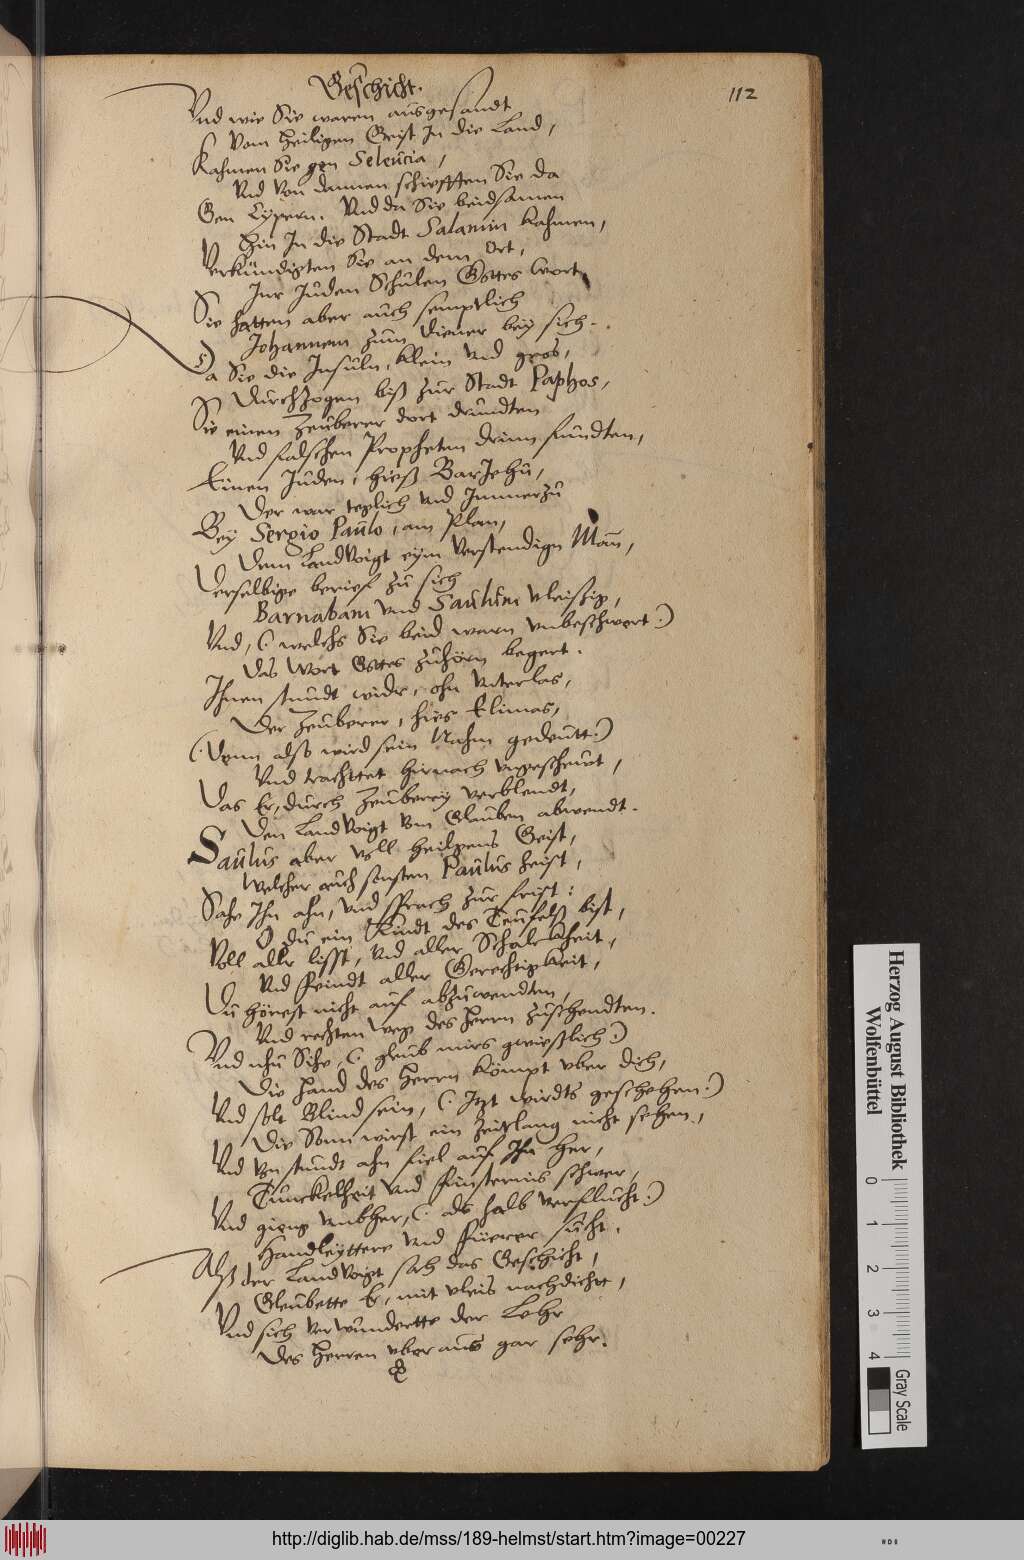 Geschicht.
112
Vnd wie Sie waren ausgesandt
Vom heiligen Geist In die Land,
Kahmen Sie gen Seleucia,
Vnd von dannen schiefften Sie da
Gen Cÿpern. Vnd da Sie beidsamen
Hin In die Stadt Salamin kahmen,
Verkündigten Sie an dem Ort,
Inr Juden Schulen Gottes wort,
Sie hatten aber auch semptlich
Johannem zum diener beÿ sich.
Da Sie die Insuln, klein vnd gros,
Durchzogen biß zur Stadt Paphos,
Sie einen Zeuberer dort drundten
Vnd falschen Propheten drinn fundten,
Einen Juden, hieß BarJehu,
Der war teglich vnd Immerzu
Beÿ Sergio Paulo, am Plan,
Dem Landvoigt eÿm verstendign Man,
Derselbige berief zu sich
Barnabam vnd Saulum vleißig,
Vnd, (: welchs Sie beid warn vnbeschwert :)
Das Wort Gottes zuhörn begert.
Ihnen stundt widr, ohn vnterlas,
Der Zeuberer, hies Elimas,
(: Denn also wird sein Nahm gedeutt :)
Vnd trachttet hirnach vngescheut,
Das Er, durch Zeubereÿ verblendt,
Den Landvoigt vom Glauben abwendt.
Saulus aber voll heilgens Geist,
Welcher auch sonsten Paulus heist,
Sahe Ihn ahn, vnd sprach zur frist:
O du ein Kindt des Teufelß bist,
Voll allr lisst, vnd aller Schalckheit,
Vnd feindt aller Gerechtigkeit,
Du hörest nicht auf abzuwendten,
Vnd rechten weg des Herrn zuschendten.
Vnd nhu Sihe, (: gleub mirs gwießlich :)
Die Hand des Herrn kömpt vber dich,
Vnd solt Blind sein, (: Itzt wirdts geschehen :)
Die Sonn wirst ein Zeitlang nicht sehen,
Vnd von stundt ahn fiel auf Ihn her,
Tunckelheit vnd finsternis schwer,
Vnd gieng vmbher, (: als halb verflucht :)
Handleÿttere vnd fuerer sucht.
Alß der Landvoigt sah das Geschicht,
Gleubette Er, mit vleis nachdicht,
Vnd sich verwundertte der Lehr
Des Herren vberaus gar sehr.
Herzog August Bibliothek
Wolfenbüttel
0 1 2 3 4
Gray Scale
http://diglib.hab.de/mss/189-helmst/start.htm?image=00227